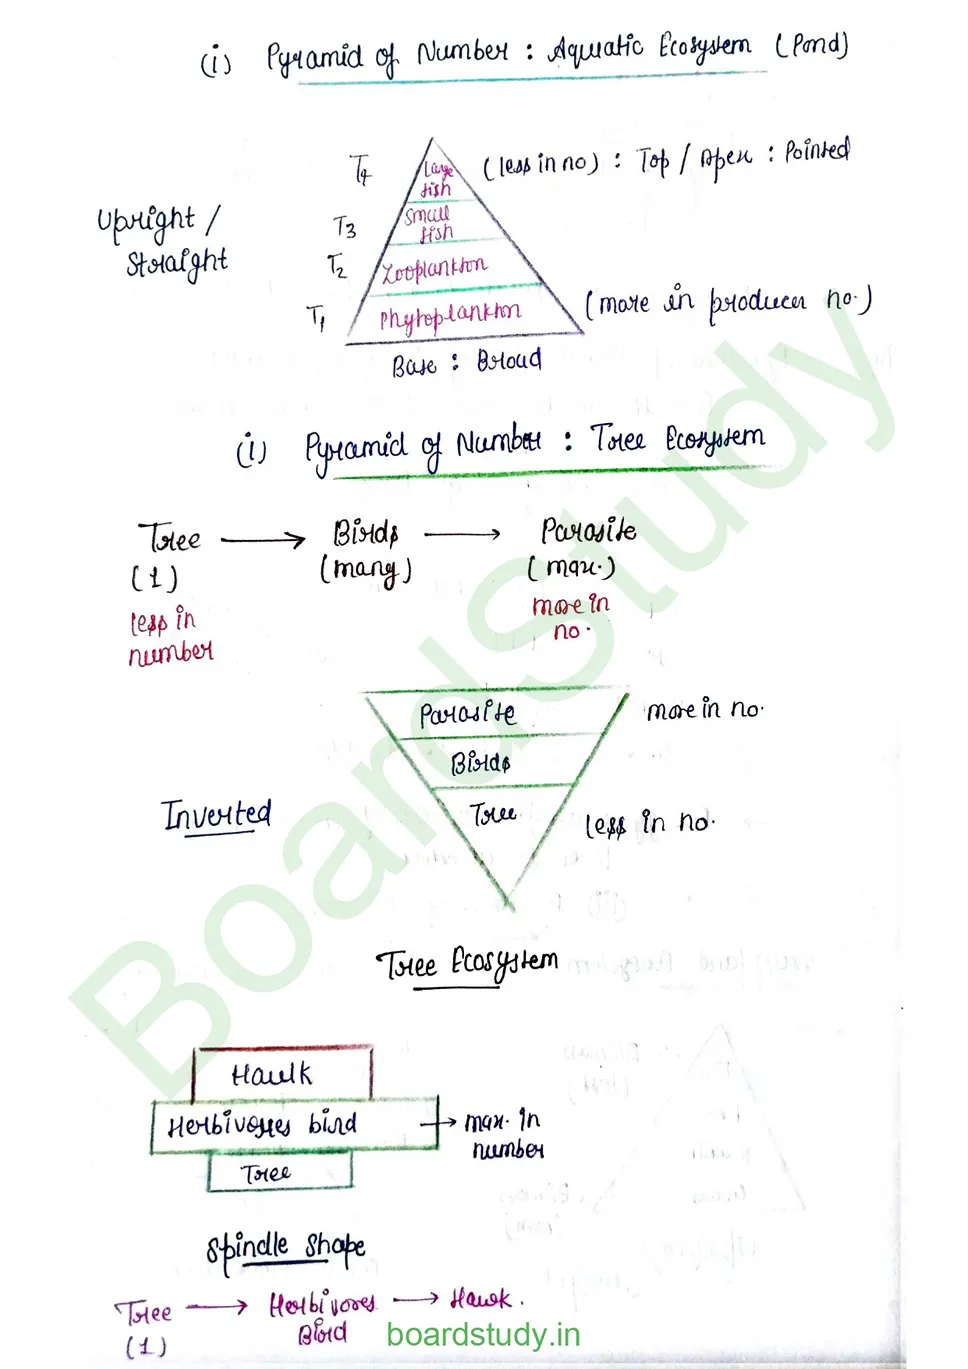 (i) Pyramid of Number : Aquatic Ecosystem (Pond)
T4 Large fish (less in no) : Top / Apex : Pointed
Upright /
Straight
T3 Small fish
T2 Zooplankton
T1 Phytoplankton (more in producer no.)
Base : Broad
(i) Pyramid of Number : Tree Ecosystem
Tree → Birds → Parasite
(1) (many) (max.)
less in number more in no.
Parasite more in no.
Birds
Inverted Tree less in no.
Tree Ecosystem
Hawk
Herbivores bird → max. in number
Tree
Spindle Shape
Tree → Herbivores Bird → Hawk.
(1)
boardstudy.in
BoardStudy